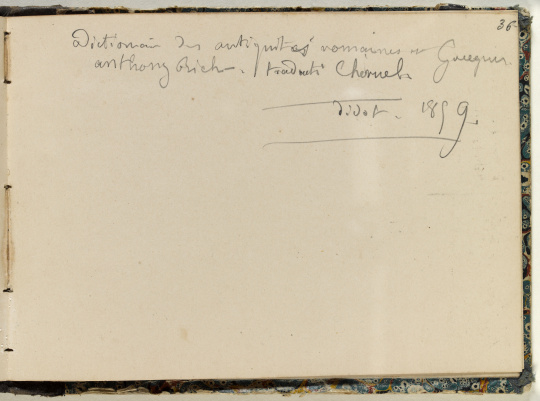 36
Dictionair des antiquités romaines et Grecques.
anthony Rich. traduit Chéruel.
didot. 1859.